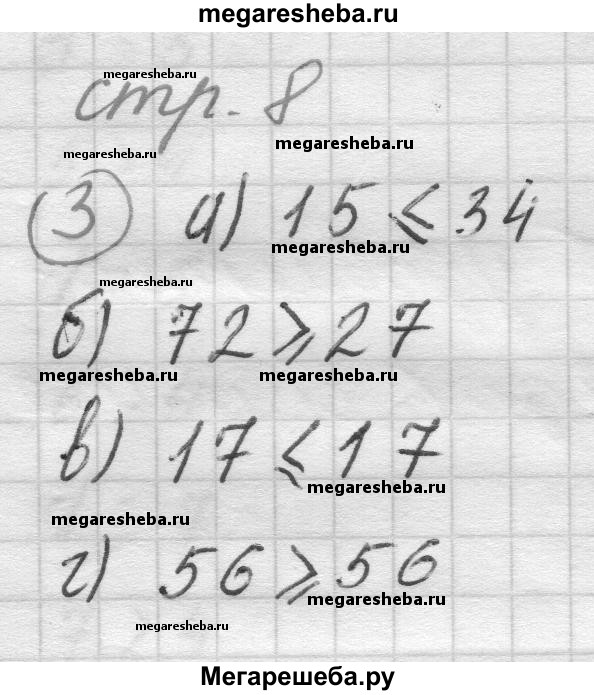 megaresheba.ru
megaresheba.ru
стр. 8
megaresheba.ru
megaresheba.ru
3 а) 15 ⩽ 34
megaresheba.ru
megaresheba.ru
б) 72 ⩾ 27
megaresheba.ru megaresheba.ru
в) 17 ⩽ 17
megaresheba.ru
megaresheba.ru
г) 56 ⩾ 56
megaresheba.ru
megaresheba.ru
Мегарешеба.ру